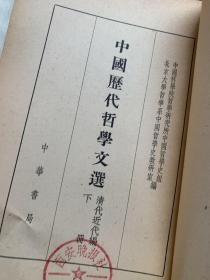 中國科學院哲學研究所中國哲學史組
北京大學哲學系中國哲學史教研室 編
中國歷代哲學文選
清代近代編
下冊
中華書局